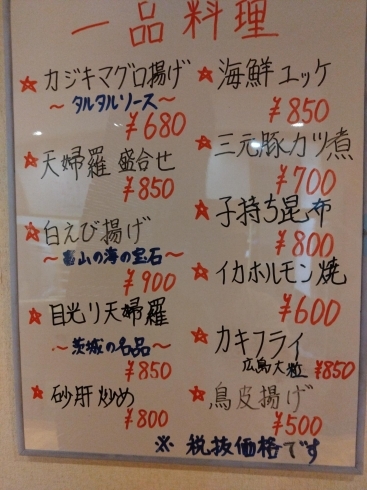 一品料理
カジキマグロ揚げ
～タルタルソース～
¥680
天婦羅 盛合せ
¥850
白えび揚げ
～富山の海の宝石～
¥900
目光り天婦羅
～茨城の名品～
¥850
砂肝炒め
¥800
海鮮ユッケ
¥850
三元豚カツ煮
¥700
子持ち昆布
¥800
イカホルモン焼
¥600
カキフライ
広島大粒 ¥850
鳥皮揚げ
¥500
※ 税抜価格です